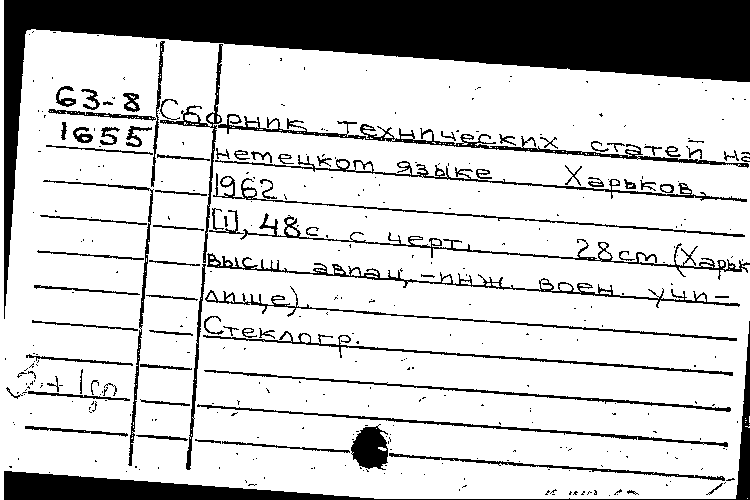 63-8
1655
Сборник технических статей на
немецком языке. Харьков,
1962.
[1], 48с. с черт. 28см. (Харьк
высш. авиац.-инж. воен. учи-
лище).
Стеклогр.